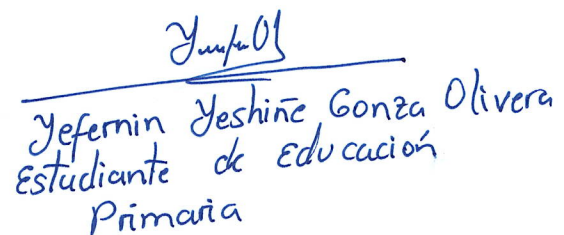 Yefernin Yeshiñe Gonza Olivera
Estudiante de Educación
Primaria